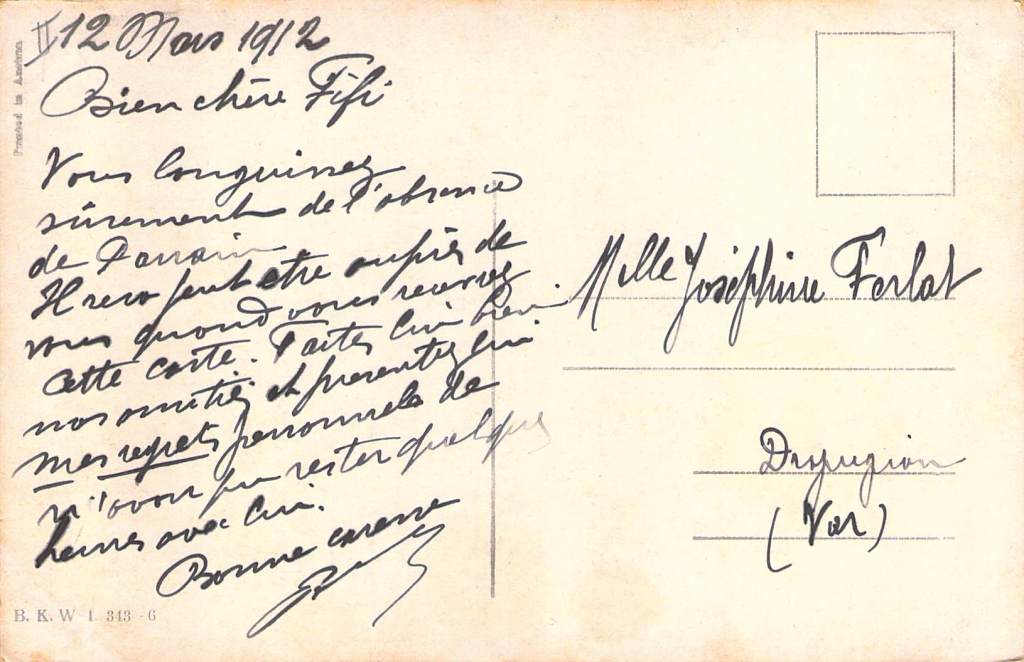 12 Mars 1912
Bien chère Fifi
Vous languissez
sûrement de l'absence
de Parrain
Il sera peut être auprès de
vous quand vous recevrez
cette carte. Faites lui bien
nos amitiés et presentez lui
mes regrets personnels de
n'avoir pu rester quelques
heures avec lui.
Bonne caresse
Mlle Joséphine Ferlat
Draguignan
(Var)
Printed in Austria
B. K. W I. 343 - 6